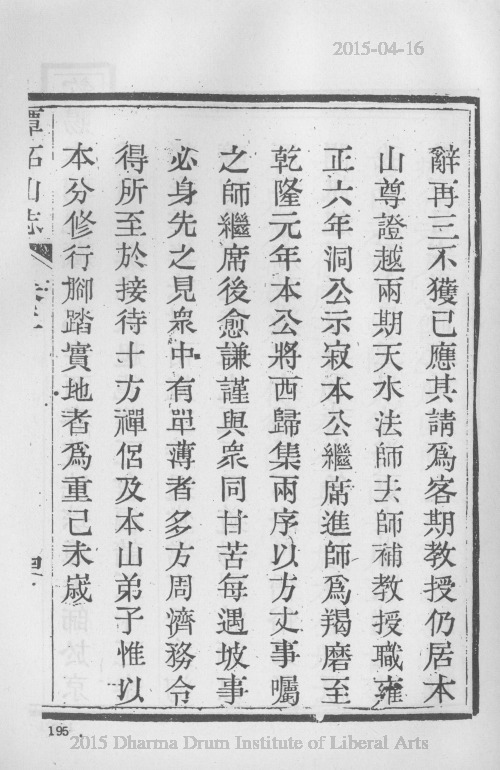 2015-04-16
辭再三不獲已應其請爲客期教授仍居本
山尊證越兩期天水法師去師補教授職雍
正六年洞公示寂本公繼席進師爲羯磨至
乾隆元年本公將西歸集兩序以方丈事囑
之師繼席後愈謙謹與衆同甘苦每遇坡事
必身先之見衆中有單薄者多方周濟務令
得所至於接待十方禪侶及本山弟子惟以
本分修行腳踏實地者爲重己未歲
潭柘山志
195
2015 Dharma Drum Institute of Liberal Arts